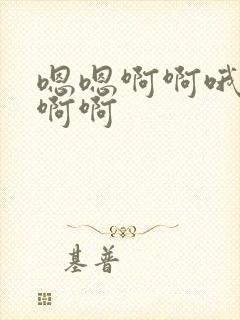 嗯嗯啊啊哦
啊啊
基普